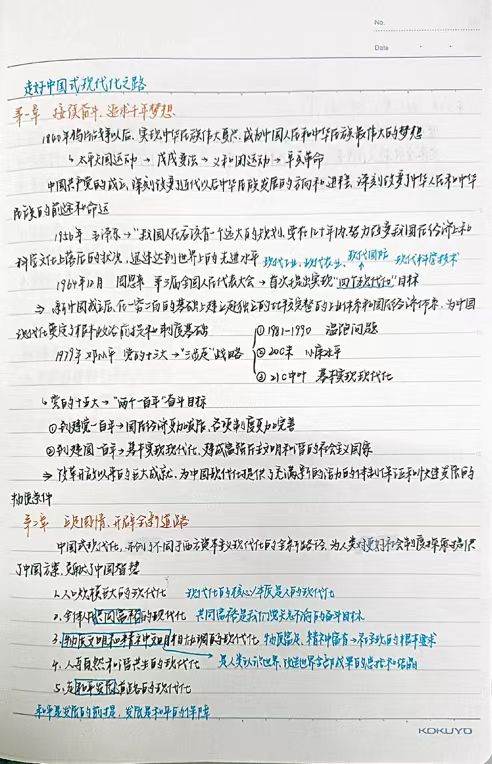 No.
Date
走好中国式现代化之路
第一章 接续奋斗,追求千年梦想
1840年鸦片战争以后,实现中华民族伟大复兴,成为中国人民和中华民族最伟大的梦想
↳ 太平天国运动 → 戊戌变法 → 义和团运动 → 辛亥革命
中国共产党的成立,深刻改变了近代以后中华民族发展的方向和进程,深刻改变了中华人民和中华
民族的前途和命运
1956年 毛泽东→"我国人民应该有一个远大的规划,要在几十年内,努力改变我国在经济上和
科学文化上落后的状况,迅速达到世界上的先进水平 现代工业,现代农业,现代国防,现代科学技术
1964年12月 周恩来 第三届全国人民代表大会→首次提出实现"四个现代化"目标
⇒ 新中国成立后,在一穷二白的基础上建立起独立的比较完整的工业体系和国民经济体系,为中国
现代化奠定了根本政治前提和制度基础
① 1981-1990 温饱问题
1979年邓小平 党的十三大→"三步走"战略
② 20C末 小康水平
③ 21C中叶 基本实现现代化
↳ 党的十五大→"两个一百年"奋斗目标
① 到建党一百年→国民经济更加发展,各项制度更加完善
② 到建国一百年→基本实现现代化,建成富强民主文明和谐的社会主义国家
⇒ 改革开放以来的巨大成就,为中国现代化提供了充满新的活力的体制保证和快速发展的
物质条件
第二章 立足国情,开辟全新道路
中国式现代化,开创了不同于西方资本主义现代化的全新路径,为人类对更好社会制度探索提供
了中国方案,贡献了中国智慧
1.人口规模巨大的现代化 现代化的核心/本质是人的现代化
2.全体人民共同富裕的现代化 共同富裕是我们坚定不移的奋斗目标
3.物质文明和精神文明相协调的现代化 物质富足、精神富有→社会主义的根本要求
4.人与自然和谐共生的现代化 是人类认识世界,改造世界全部成果的总括和结晶
5.走和平发展道路的现代化
和平是发展的前提,发展是和平的保障
KOKUYO